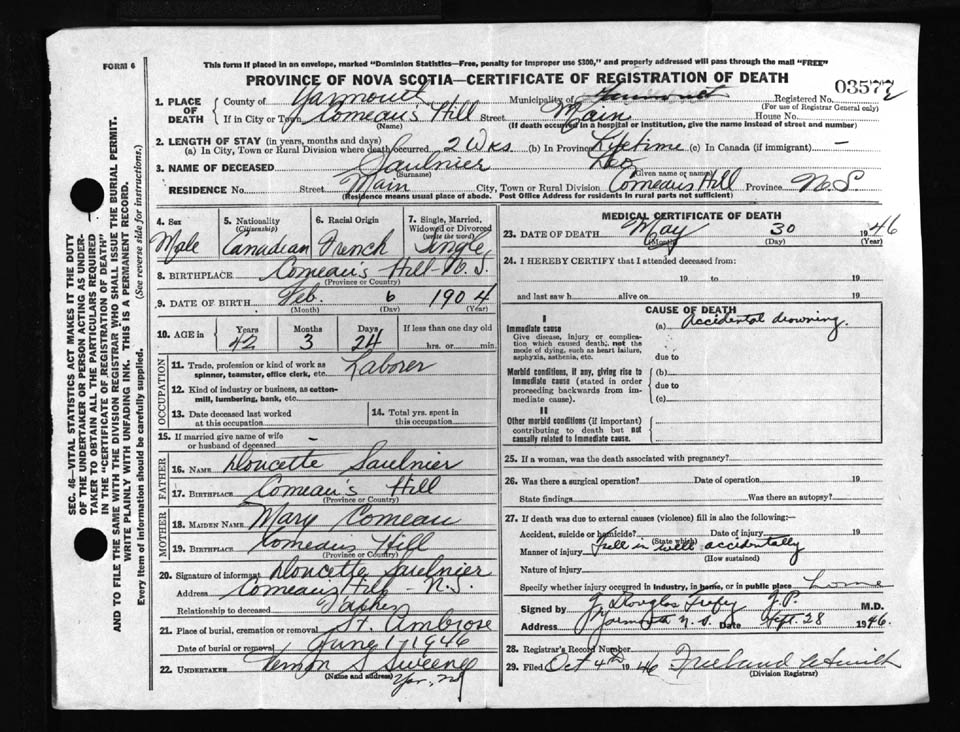 FORM 6
This form if placed in an envelope, marked "Dominion Statistics—Free, penalty for improper use $300," and properly addressed will pass through the mail "FREE"
PROVINCE OF NOVA SCOTIA—CERTIFICATE OF REGISTRATION OF DEATH
03577
1. PLACE OF DEATH
County of Yarmouth Municipality of Yarmouth Registered No.
(For use of Registrar General only)
If in City or Town Comeau's Hill Street Main House No.
(Name) (If death occurred in a hospital or institution, give the name instead of street and number)
2. LENGTH OF STAY (in years, months and days)
(a) In City, Town or Rural Division where death occurred 2 Wks. (b) In Province Lifetime (c) In Canada (if immigrant) —
3. NAME OF DECEASED Saulnier Leo
(Surname) (Given name or names)
RESIDENCE No. Street Main City, Town or Rural Division Comeaus Hill Province N.S.
(Residence means usual place of abode. Post Office Address for residents in rural parts not sufficient)
SEC. 46—VITAL STATISTICS ACT MAKES IT THE DUTY
OF THE UNDERTAKER OR PERSON ACTING AS UNDER-
TAKER TO OBTAIN ALL THE PARTICULARS REQUIRED
IN THE "CERTIFICATE OF REGISTRATION OF DEATH"
AND TO FILE THE SAME WITH THE DIVISION REGISTRAR WHO SHALL ISSUE THE BURIAL PERMIT.
WRITE PLAINLY WITH UNFADING INK. THIS IS A PERMANENT RECORD.
Every item of information should be carefully supplied. (See reverse side for instructions.)
4. Sex
Male
5. Nationality
(Citizenship)
Canadian
6. Racial Origin
French
7. Single, Married,
Widowed or Divorced
(write the word)
Single
8. BIRTHPLACE Comeau's Hill N.S.
(Province or Country)
9. DATE OF BIRTH Feb. 6 1904
(Month) (Day) (Year)
10. AGE in
Years Months Days If less than one day old
42 3 24 hrs. or min.
OCCUPATION
11. Trade, profession or kind of work as
spinner, teamster, office clerk, etc. Laborer
12. Kind of industry or business, as cotton-
mill, lumbering, bank, etc.
13. Date deceased last worked
at this occupation
14. Total yrs. spent in
this occupation
15. If married give name of wife
or husband of deceased —
FATHER
16. NAME Doucette Saulnier
17. BIRTHPLACE Comeau's Hill
(Province or Country)
MOTHER
18. MAIDEN NAME Mary Comeau
19. BIRTHPLACE Comeaus Hill
(Province or Country)
20. Signature of informant Doucette Saulnier
Address Comeaus Hill - N.S.
Relationship to deceased Father
21. Place of burial, cremation or removal St. Ambrose
Date of burial or removal June 1 1946
22. UNDERTAKER Vernon S Sweeney
(Name and address)
MEDICAL CERTIFICATE OF DEATH
23. DATE OF DEATH May 30 1946
(Month) (Day) (Year)
24. I HEREBY CERTIFY that I attended deceased from:
19 to 19
and last saw h alive on 19
CAUSE OF DEATH
I
Immediate cause (a) Accidental drowning.
Give disease, injury or complica-
tion which caused death, not the
mode of dying, such as heart failure,
asphyxia, asthenia, etc. due to
Morbid conditions, if any, giving rise to (b)
immediate cause (stated in order due to
proceeding backwards from im-
mediate cause). (c)
II
Other morbid conditions (if important)
contributing to death but not
causally related to immediate cause.
25. If a woman, was the death associated with pregnancy?
26. Was there a surgical operation? Date of operation 19
State findings Was there an autopsy?
27. If death was due to external causes (violence) fill in also the following:—
Accident, suicide or homicide? Date of injury 19
(State which)
Manner of injury Fell in well accidentally
(How sustained)
Nature of injury
Specify whether injury occurred in industry, in home, or in public place home
Signed by J. Douglas Trefry J.P. M.D.
Address Yarmouth N.S. Date Sept. 28 1946.
28. Registrar's Record Number
29. Filed Oct 4th 1946 Freeland Smith
(Division Registrar)